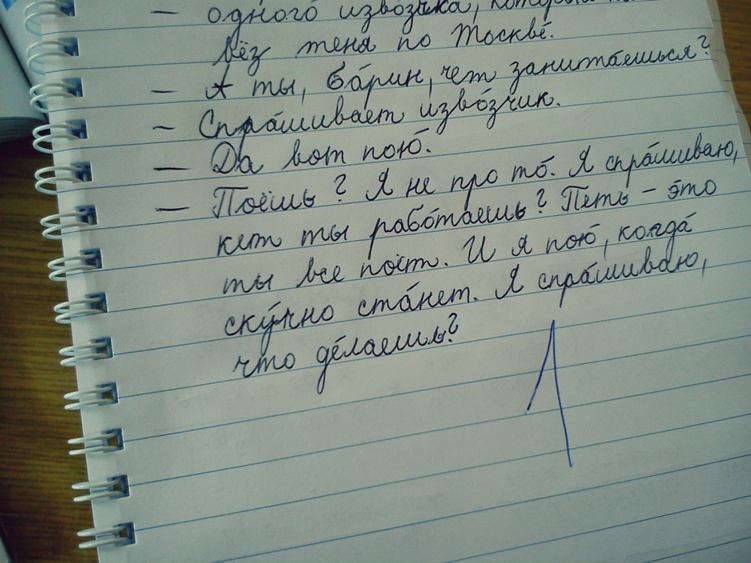 — одного́ изво́зчика, который
вёз меня по Москве́.
— А ты, ба́рин, чем занима́ешься?
— Спра́шивает изво́зчик.
— Да вот пою́.
— Поёшь? Я не про то́. Я спра́шиваю,
кем ты рабо́таешь? Петь – э́то
мы все поём. И я пою́, когда́
ску́чно ста́нет. Я спра́шиваю,
что де́лаешь?
1